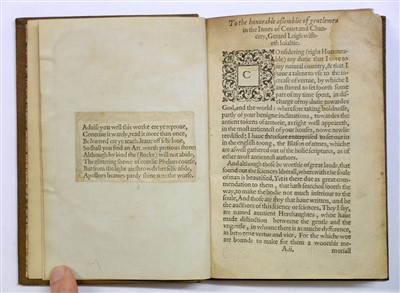 Aduise you well this worke ere ye reproue,
Conceiue it warely, read it more then once,
Be learned ere ye teach, leaue of selfe loue,
So shall you find an Art worth pretious stones
Although by kind the (Rocke) will not abide,
The glittering shewe of comlie Phebus course,
But from the light air shrowdes her selfe aside,
Apollos beames hardy shineth to the worse.
To the honorable assemblie of gentlemen
in the Innes of Court and Chan-
cery, Gerard Leigh wish-
eth loialtie.
COnsidering (right Honoura-
ble) my dutie that I owe to
my natural country, & that I
haue a talent to vse to the in-
crease of vertue, by which I
am stirred to set foorth some
part of my time spent, in dis-
charge of my dutie towardes
God, and the world: wherefore taking boldnesse,
partly of your benigne inclinations, towardes the
antient tokens of armorie, as right well appeareth,
in the most antientst of your houses, nowe newlie
reedified; I haue therefore enterprised to set out in
the english toong, the Blason of armes, which
are alwell gathered out of the holie scriptures, as of
other most antientest authors.
And although those be worthie of great laude, that
found out the sciences liberall, wherewith the soule
of man is beautified, Yet is there due as great com-
mendation to them, that haue searched foorth the
way, to make the bodie not much inferiour to the
soule, And those are they that haue written, and be
the auctors of this science or sciences. They I say,
are named auncient Herehaughtes, whoe haue
made distinction betweene the gentle and the
vngentle, in whom there is as much difference,
as betweene vertue and vice. For the which wee
are bounde to make for them a woorthie me-
A.ii. moriall